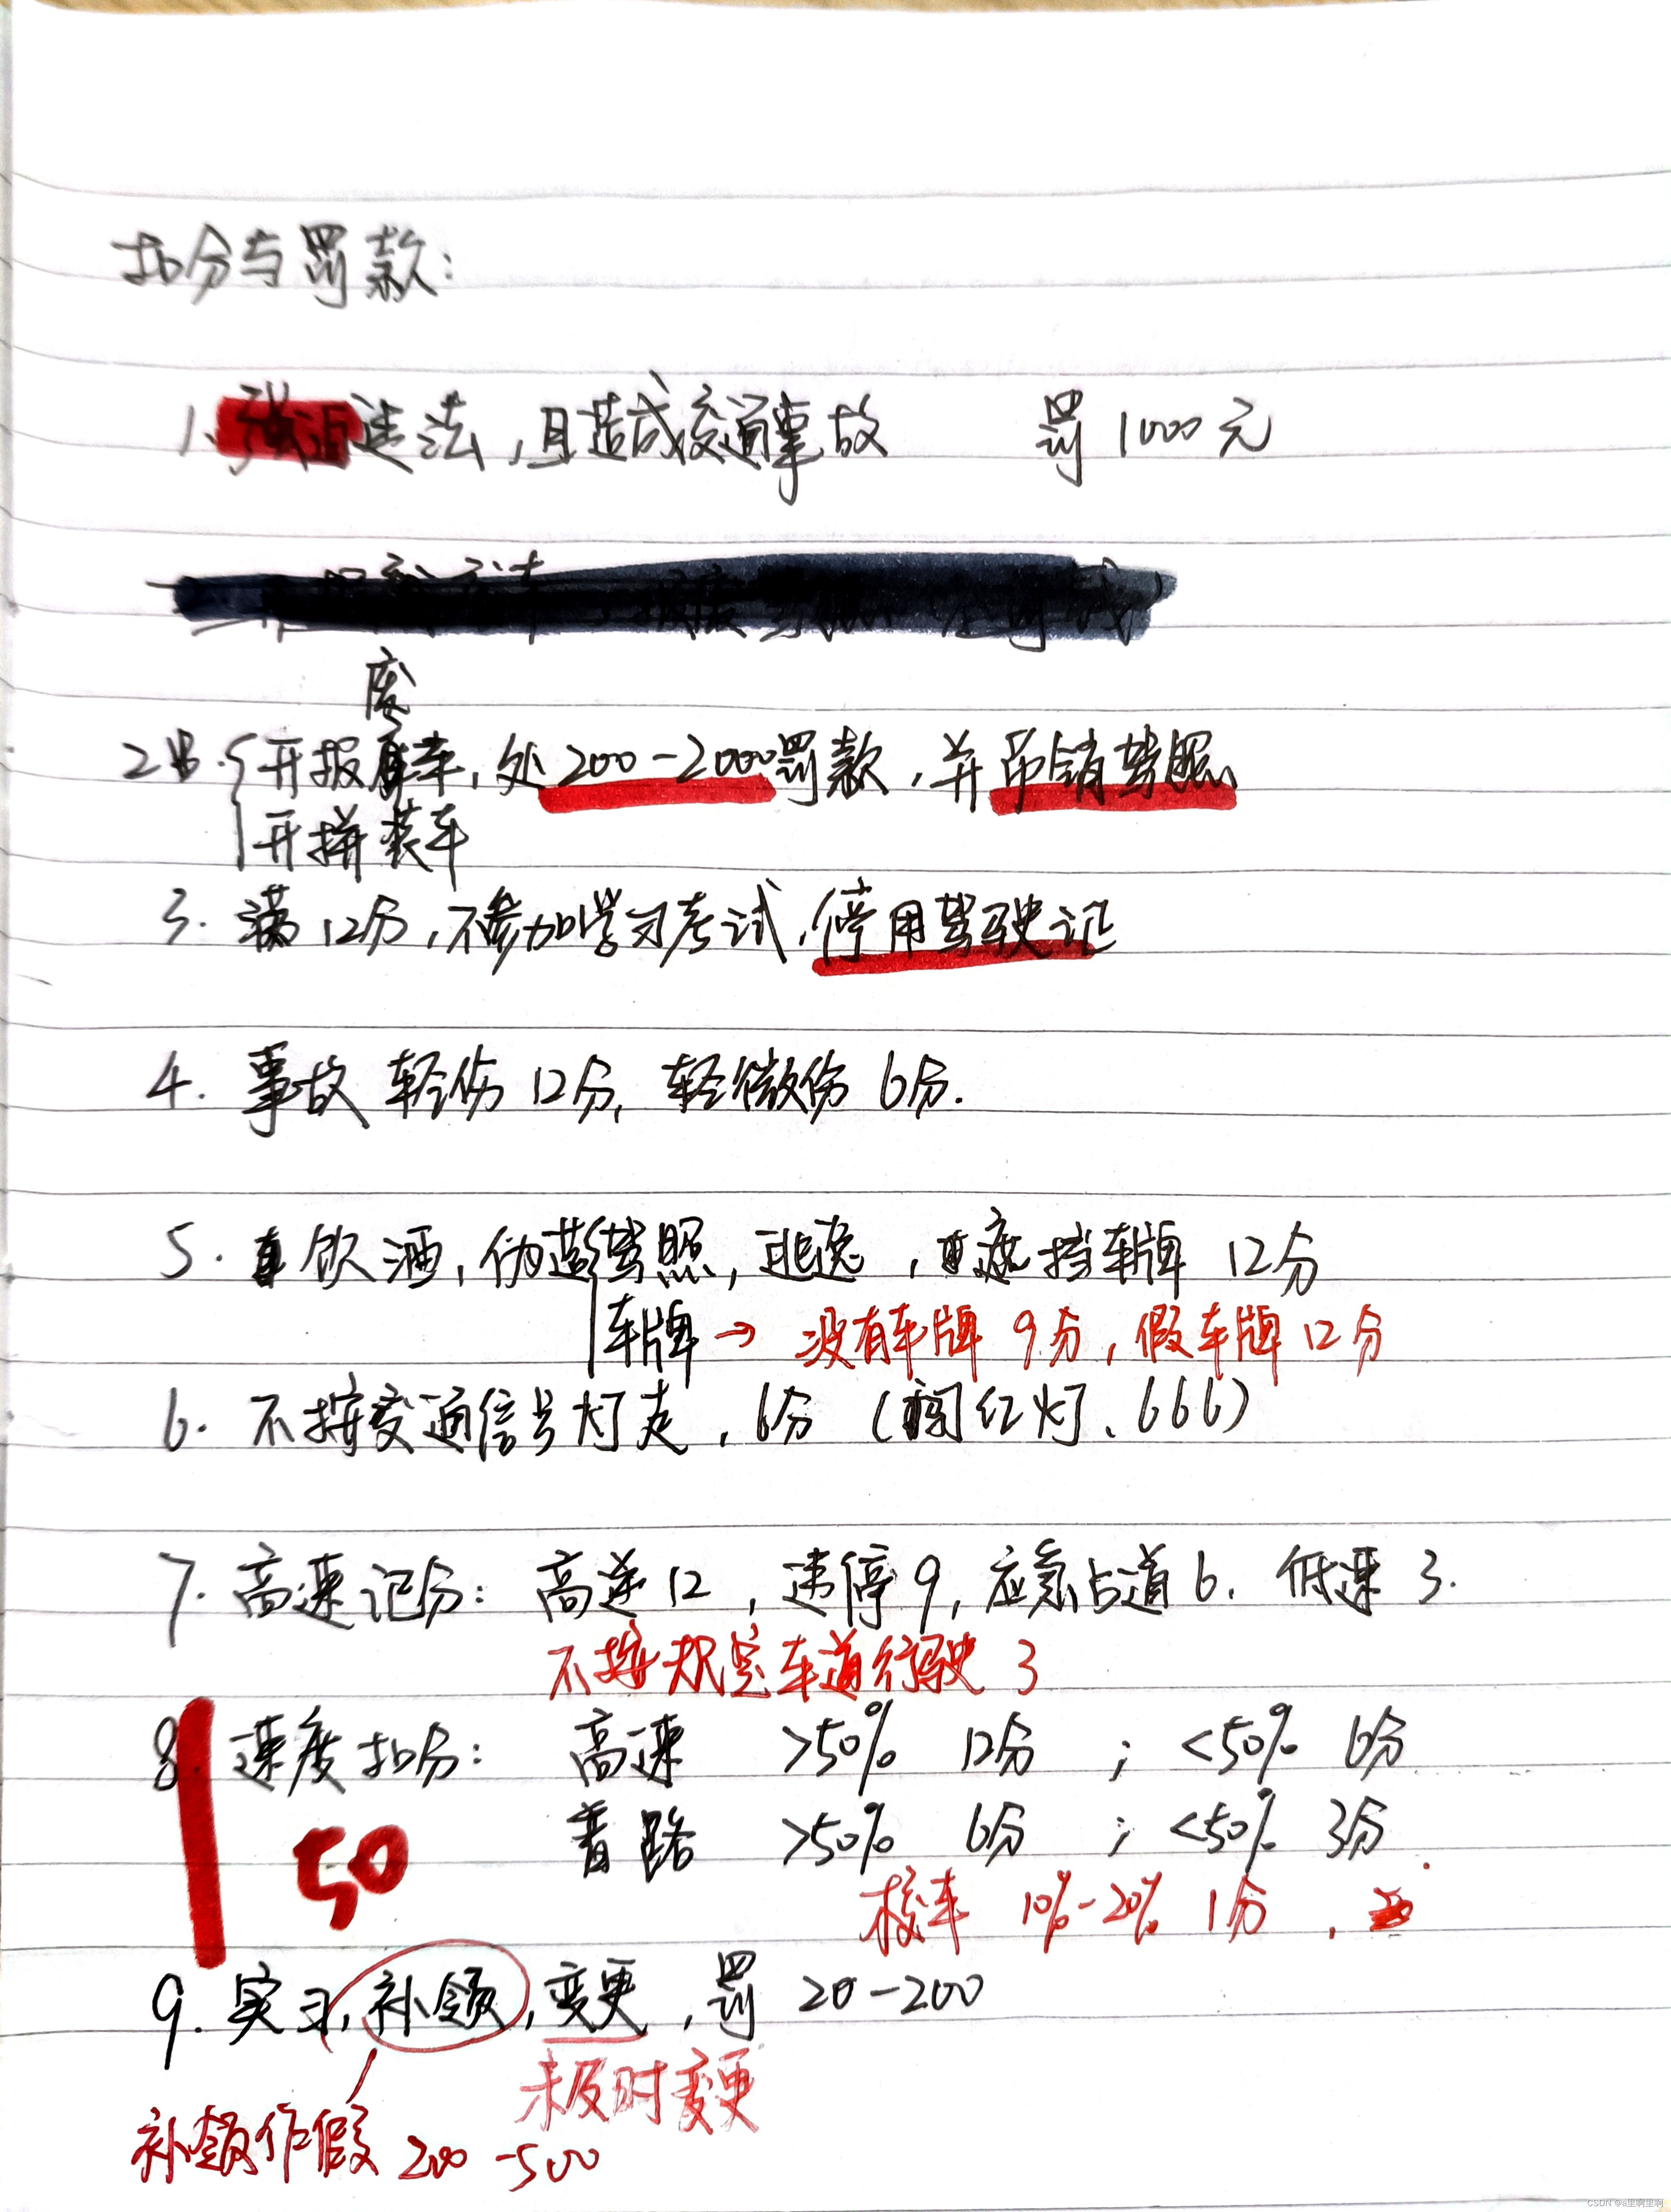 扣分与罚款:
1. 违法,且造成交通事故 罚1000元
废
2. 开报废车,处200-2000罚款,并吊销驾照
开拼装车
3. 满12分,不参加学习考试,停用驾驶证
4. 事故 轻伤12分,轻微伤6分.
5. 饮酒,伪造驾照,逃逸,遮挡车牌 12分
车牌→ 没有车牌9分,假车牌12分
6. 不按交通信号灯走,6分(闯红灯、666)
7. 高速记分: 高逆12,违停9,应急占道6. 低速3.
不按规定车道行驶3
8. 速度扣分: 高速 >50% 12分 ; <50% 6分
50 普路 >50% 6分 ; <50% 3分
校车 10%-20% 1分
9. 实习,补领,变更,罚20-200
未及时变更
补领作假 200-500
CSDN @a里啊里啊